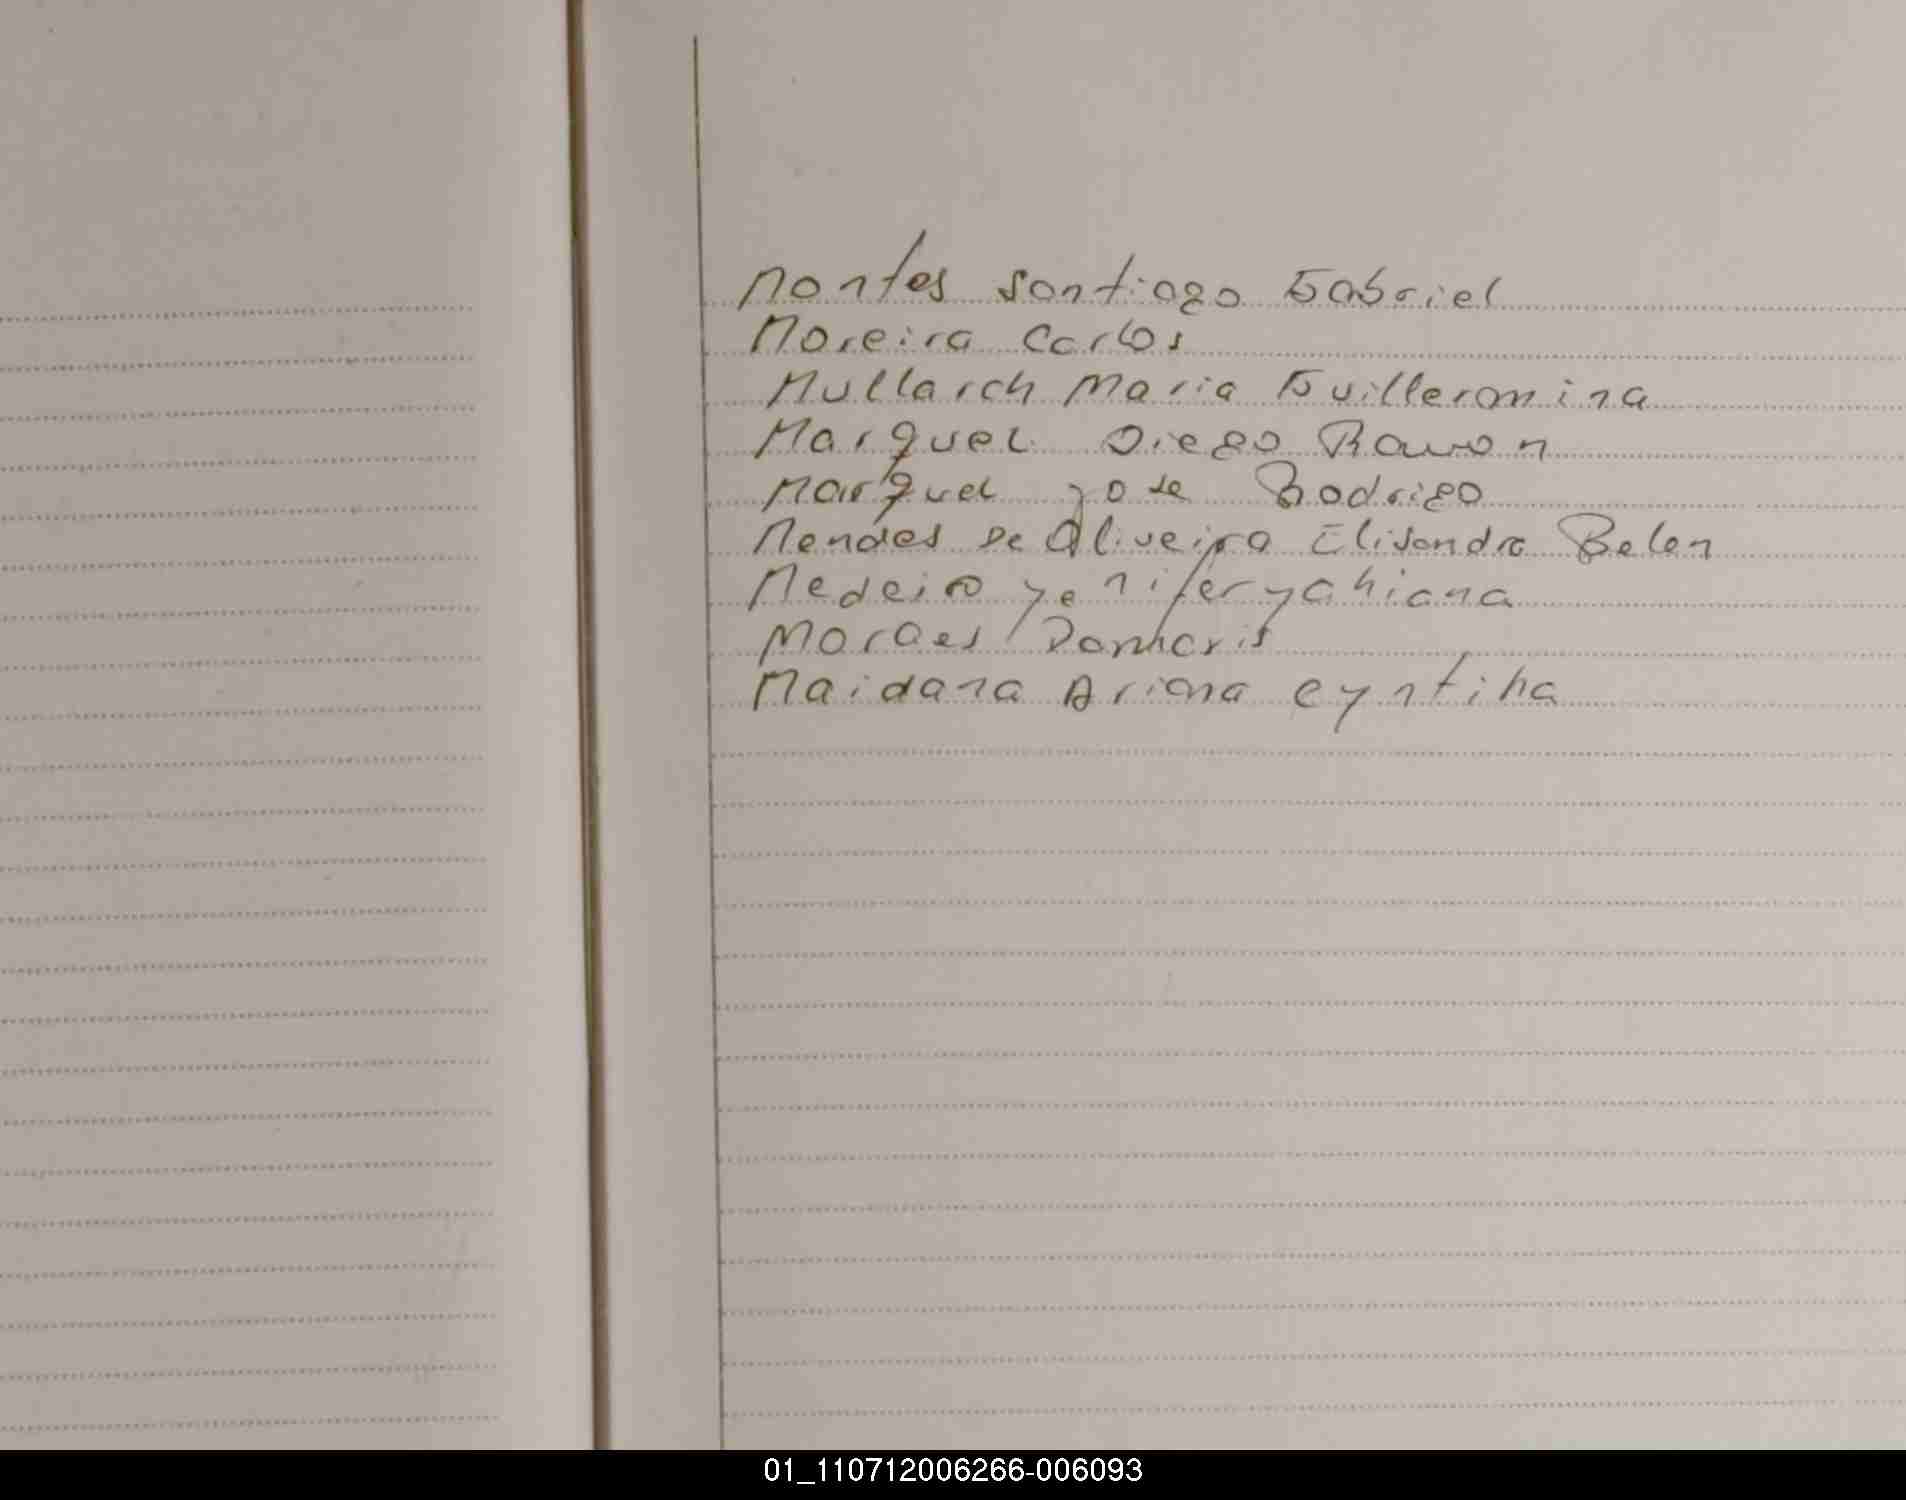 Montes Santiago Gabriel
Moreira Carlos
Mullarch Maria Guilleromina
Marquel Diego Ramon
Marquel Jose Rodrigo
Mendes De Oliveira Elisandra Belen
Medeiro yenifer yahiana
Moraes Damaris
Maidana Ariana Cyntiha
01_110712006266-006093